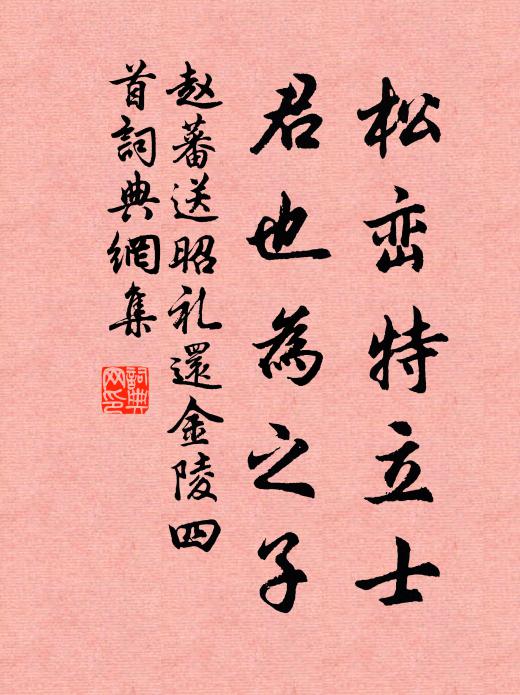 松峦特立士
君也為之子
赵蕃送昭礼還金陵四
首詞典網集
詞典网印